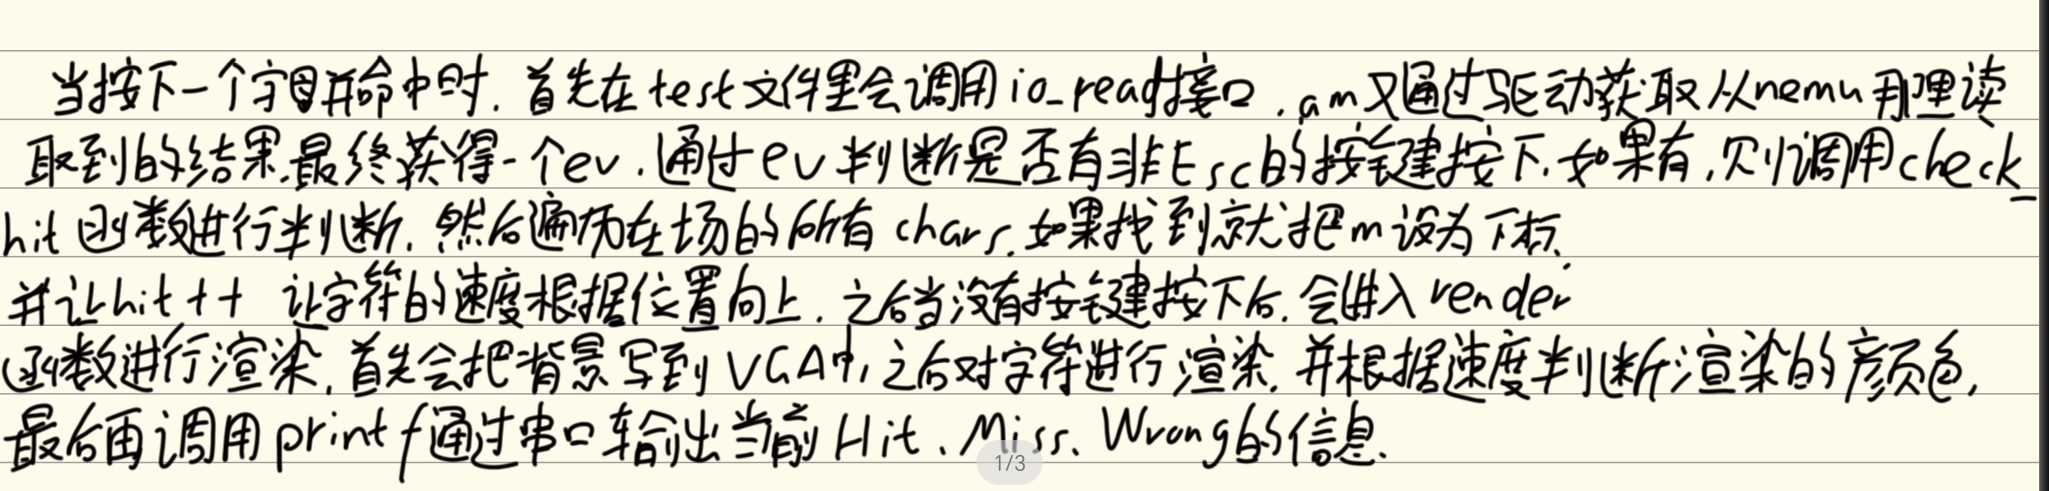 当按下一个字母并命中时,首先在test文件里会调用io_read接口,am又通过驱动获取从nemu那里读
取到的结果,最终获得一个ev,通过ev判断是否有非Esc的按键按下,如果有,则调用check_
hit函数进行判断,然后遍历在场的所有chars,如果找到就把m设为下标,
并让hit++ 让字符的速度根据位置向上,之后当没有按键按下后,会进入render
函数进行渲染,首先会把背景写到VGA中,之后对字符进行渲染,并根据速度判断渲染的颜色,
最后再调用printf通过串口输出当前Hit、Miss、Wrong的信息.
1/3